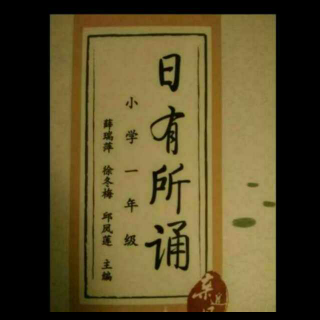 日有所诵
小学一年级
薛瑞萍 徐冬梅 邱凤莲 主编